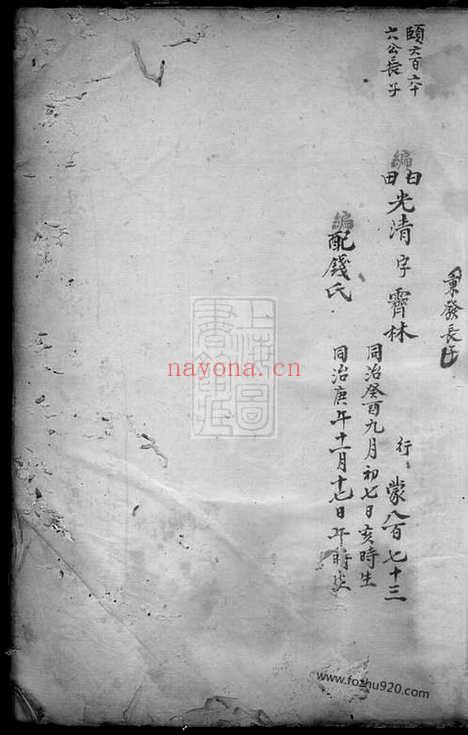 頤六百六十
六公長子
秉發長子
編
光清字霽林
行蒙八百七十三
同治癸酉九月初七日亥時生
編
配錢氏
同治庚午十一月十七日午時生
上海圖
書館藏
nayona.cn
www.fozhu920.com